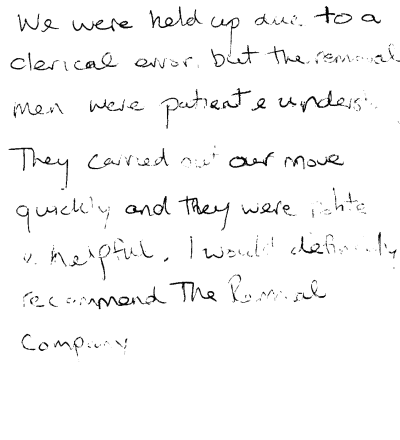 We were held up due to a
clerical error. but the removal
men were patient &
They carried out our move
quickly and they were polite
v. helpful. I would definitely
recommend The Removal
Company